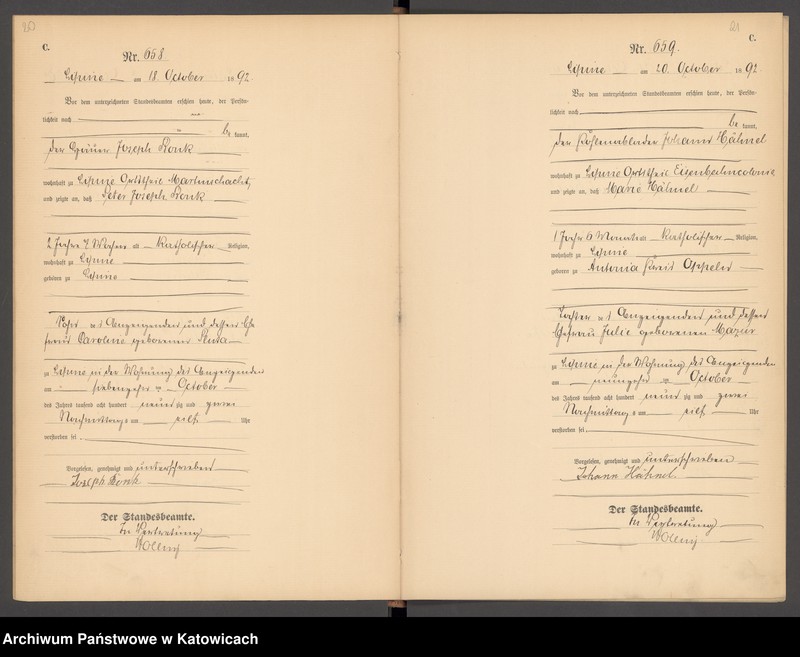 20
C.
Nr. 658.
Lipine am 18 October 1892.
Vor dem unterzeichneten Standesbeamten erschien heute, der Persön-
lichkeit nach
be kannt,
der Häuer Joseph
wohnhaft zu Lipine Ortstheil Martinschacht,
und zeigte an, daß Peter Joseph
2 Jahre 7 Wochen alt katholischer Religion,
wohnhaft zu Lipine
geboren zu Lipine
Sohn des Anzeigenden und dessen Ehe
frau Caroline geborenen
zu Lipine in der Wohnung des Anzeigenden
am siebenzehn ten October
des Jahres tausend acht hundert neun zig und zwei
Nachmittags um elf Uhr
verstorben sei.
Vorgelesen, genehmigt und unterschrieben
Joseph
Der Standesbeamte.
In Vertretung
Wolny
21
C.
Nr. 659.
Lipine am 20 October 1892
Vor dem unterzeichneten Standesbeamten erschien heute, der Persön-
lichkeit nach
be kannt,
der Kohlenablader Johann Hähnel
wohnhaft zu Lipine Ortstheil Eisenbahncolonie
und zeigte an, daß Marie Hähnel
1 Jahr 6 Monate alt katholischer Religion,
wohnhaft zu Lipine
geboren zu Antonia Kreis Oppeln
Tochter des Anzeigenden und dessen
Ehefrau Julie geborenen Mazur
zu Lipine in der Wohnung des Anzeigenden
am neunzehn ten October
des Jahres tausend acht hundert neun zig und zwei
Nachmittags um elf Uhr
verstorben sei.
Vorgelesen, genehmigt und unterschrieben
Johann Hähnel
Der Standesbeamte.
In Vertretung
Wolny
Archiwum Państwowe w Katowicach